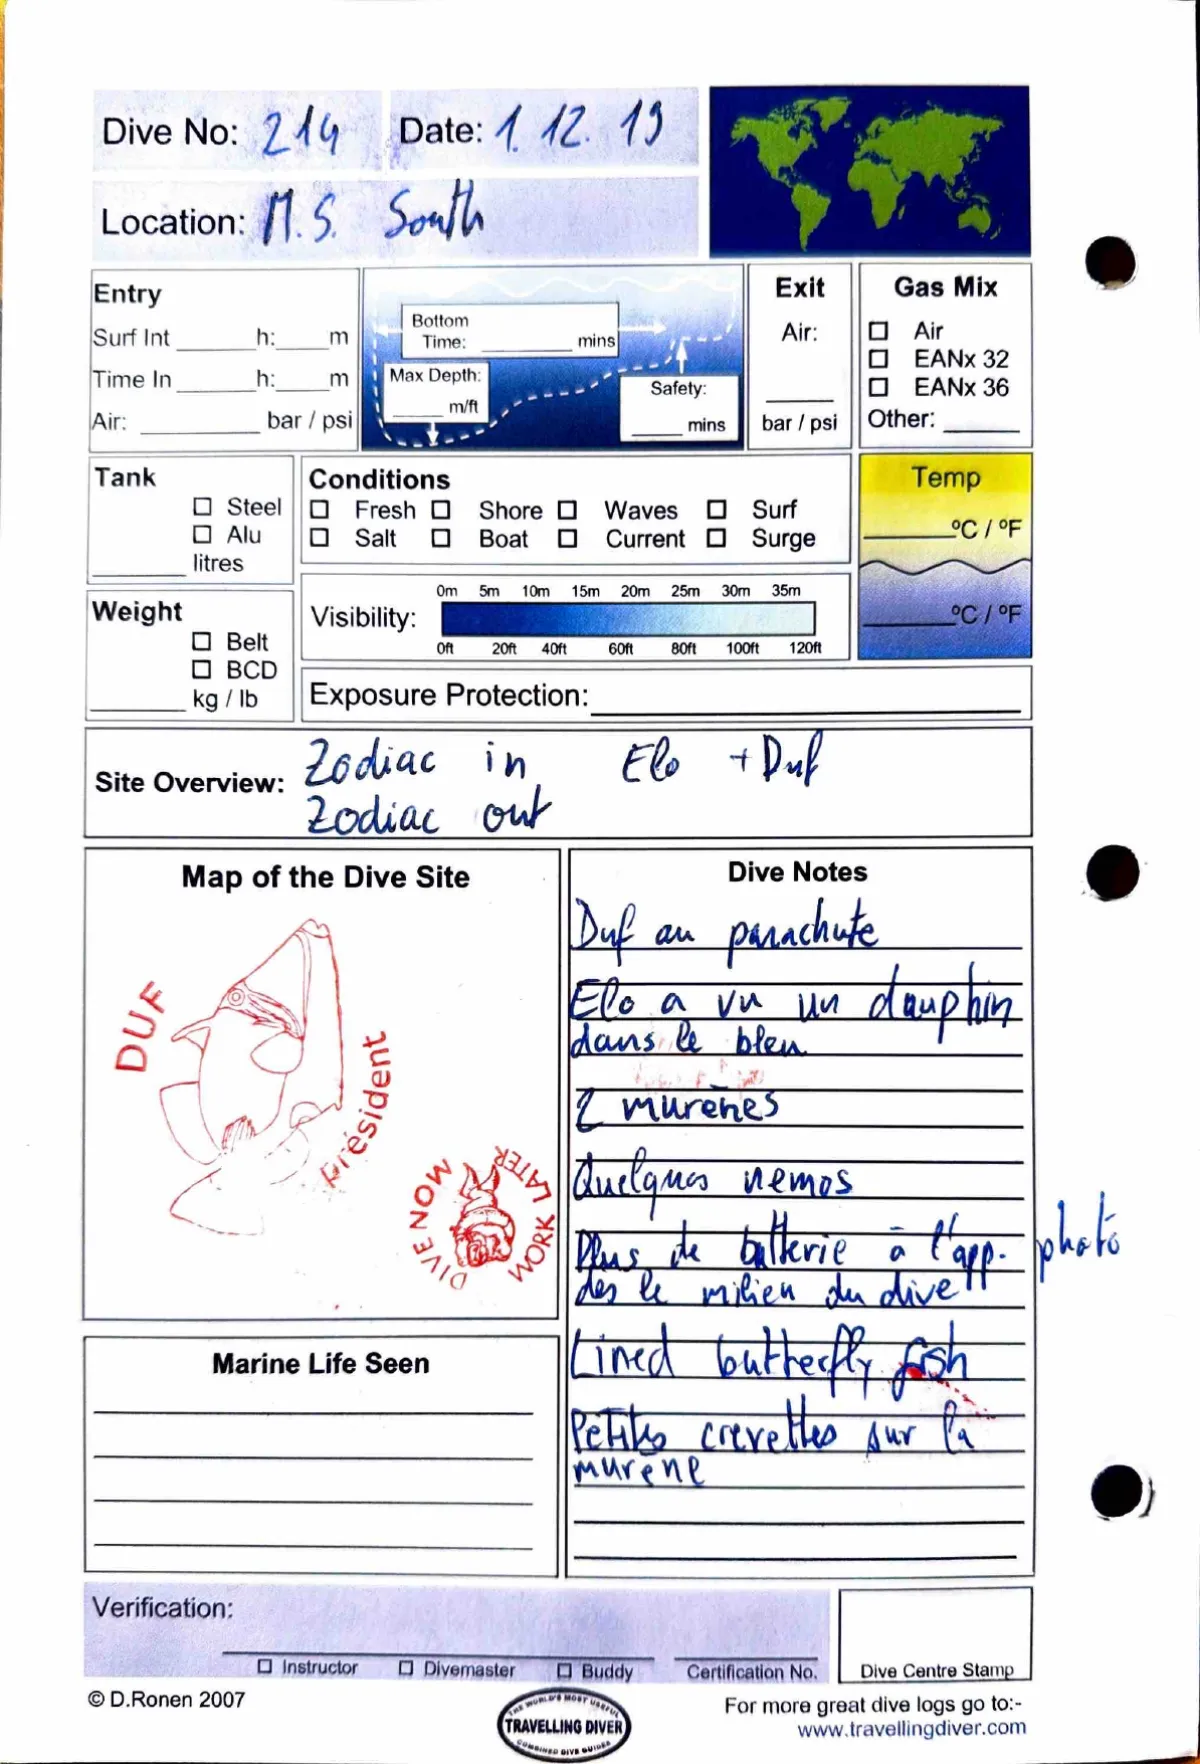 Dive No: 214 Date: 1. 12. 19
Location: M.S. South
Entry
Surf Int ______ h: ____ m
Time In ______ h: ____ m
Air: ________ bar / psi
Bottom
Time: ________ mins
Max Depth:
____ m/ft
Safety:
____ mins
Exit
Air:
______
bar / psi
Gas Mix
☐ Air
☐ EANx 32
☐ EANx 36
Other: ______
Tank
☐ Steel
☐ Alu
______ litres
Conditions
☐ Fresh ☐ Shore ☐ Waves ☐ Surf
☐ Salt ☐ Boat ☐ Current ☐ Surge
Temp
______ ºC / ºF
______ ºC / ºF
Weight
☐ Belt
☐ BCD
______ kg / lb
0m 5m 10m 15m 20m 25m 30m 35m
Visibility:
0ft 20ft 40ft 60ft 80ft 100ft 120ft
Exposure Protection:
Site Overview: Zodiac in Elo + Duf
Zodiac out
Map of the Dive Site
DUF
président
DIVE NOW
WORK LATER
Marine Life Seen
Dive Notes
Duf au parachute
Elo a vu un dauphin
dans le bleu
2 murènes
Quelques nemos
Plus de batterie à l'app. photo
dès le milieu du dive
Lined butterfly fish
Petites crevettes sur la
murène
Verification:
☐ Instructor ☐ Divemaster ☐ Buddy Certification No.
Dive Centre Stamp
© D.Ronen 2007
THE WORLD'S MOST USEFUL
TRAVELLING DIVER
COMBINED DIVE GUIDES
For more great dive logs go to:-
www.travellingdiver.com